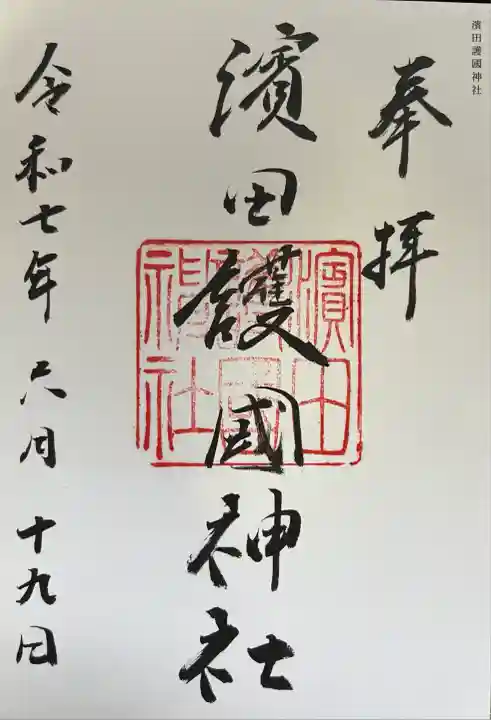 濱田護國神社
奉拝
濱田護國神社
濱田
護國
神社
令和七年 六月 十九日